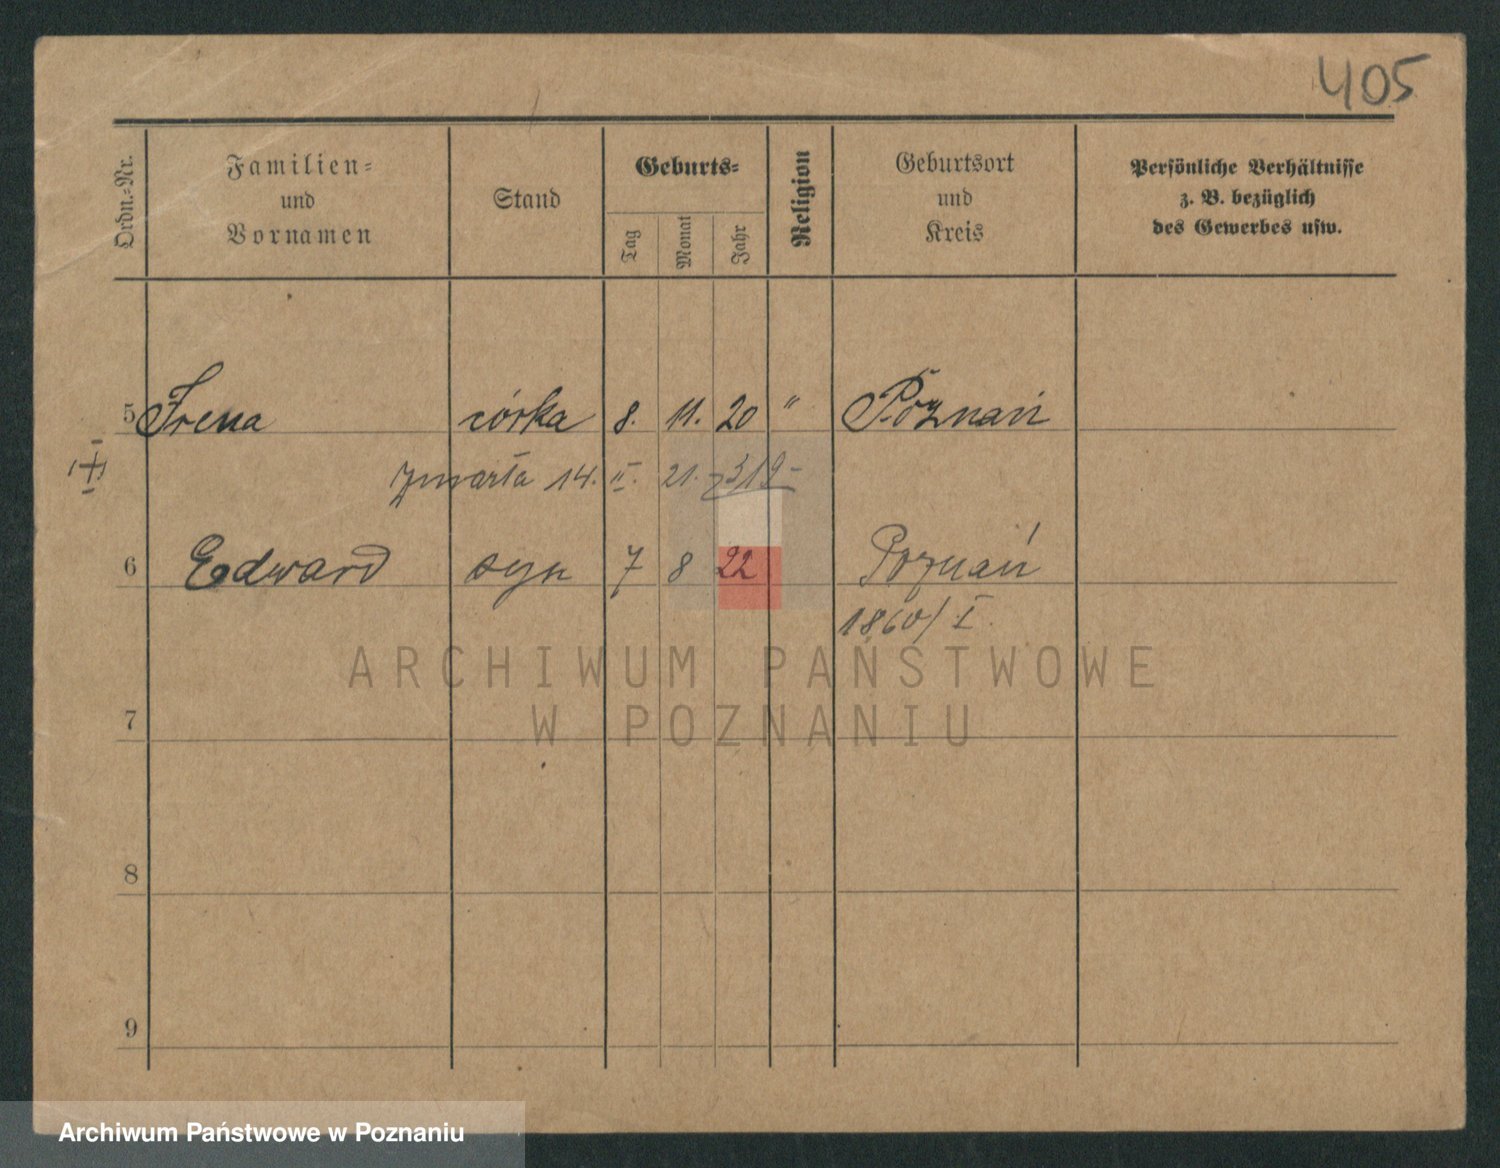 405
Ordn.-Nr.
Familien-
und
Vornamen
Stand
Geburts-
Tag
Monat
Jahr
Religion
Geburtsort
und
Kreis
Persönliche Verhältnisse
z. B. bezüglich
des Gewerbes usw.
5 Irena córka 8. 11. 20 " Poznań
zmarła 14. II. 21. - 319 -
6 Edward syn 7 8 22 Poznań
1860/I.
ARCHIWUM PAŃSTWOWE
W POZNANIU
7
8
9
Archiwum Państwowe w Poznaniu